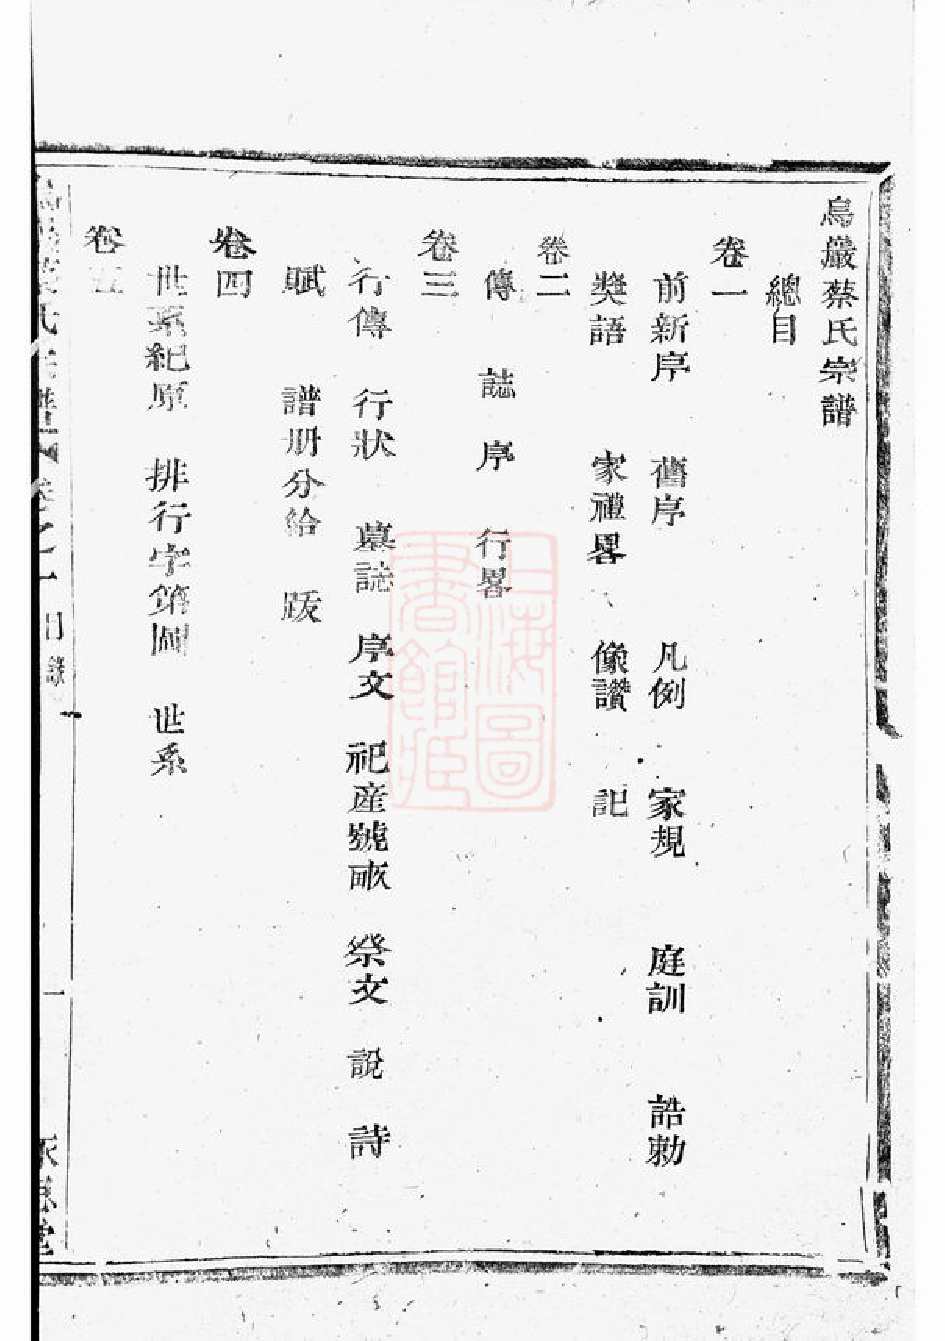 烏巖蔡氏宗譜
總目
卷一
前新序 舊序 凡例 家規 庭訓 誥勅
奬語 家禮畧 像讚 記
卷二
傳 誌 序 行畧
卷三
行傳 行狀 墓誌 序文 祀産號畝 祭文 説 詩
賦 譜册分給 跋
卷四
世系紀原 排行字第圖 世系
卷五
氏宗譜 卷之一 目錄 一
上海圖書館藏